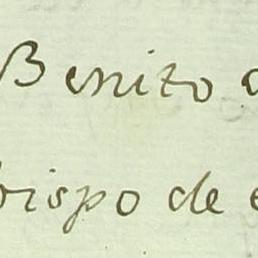 Benito
bispo de